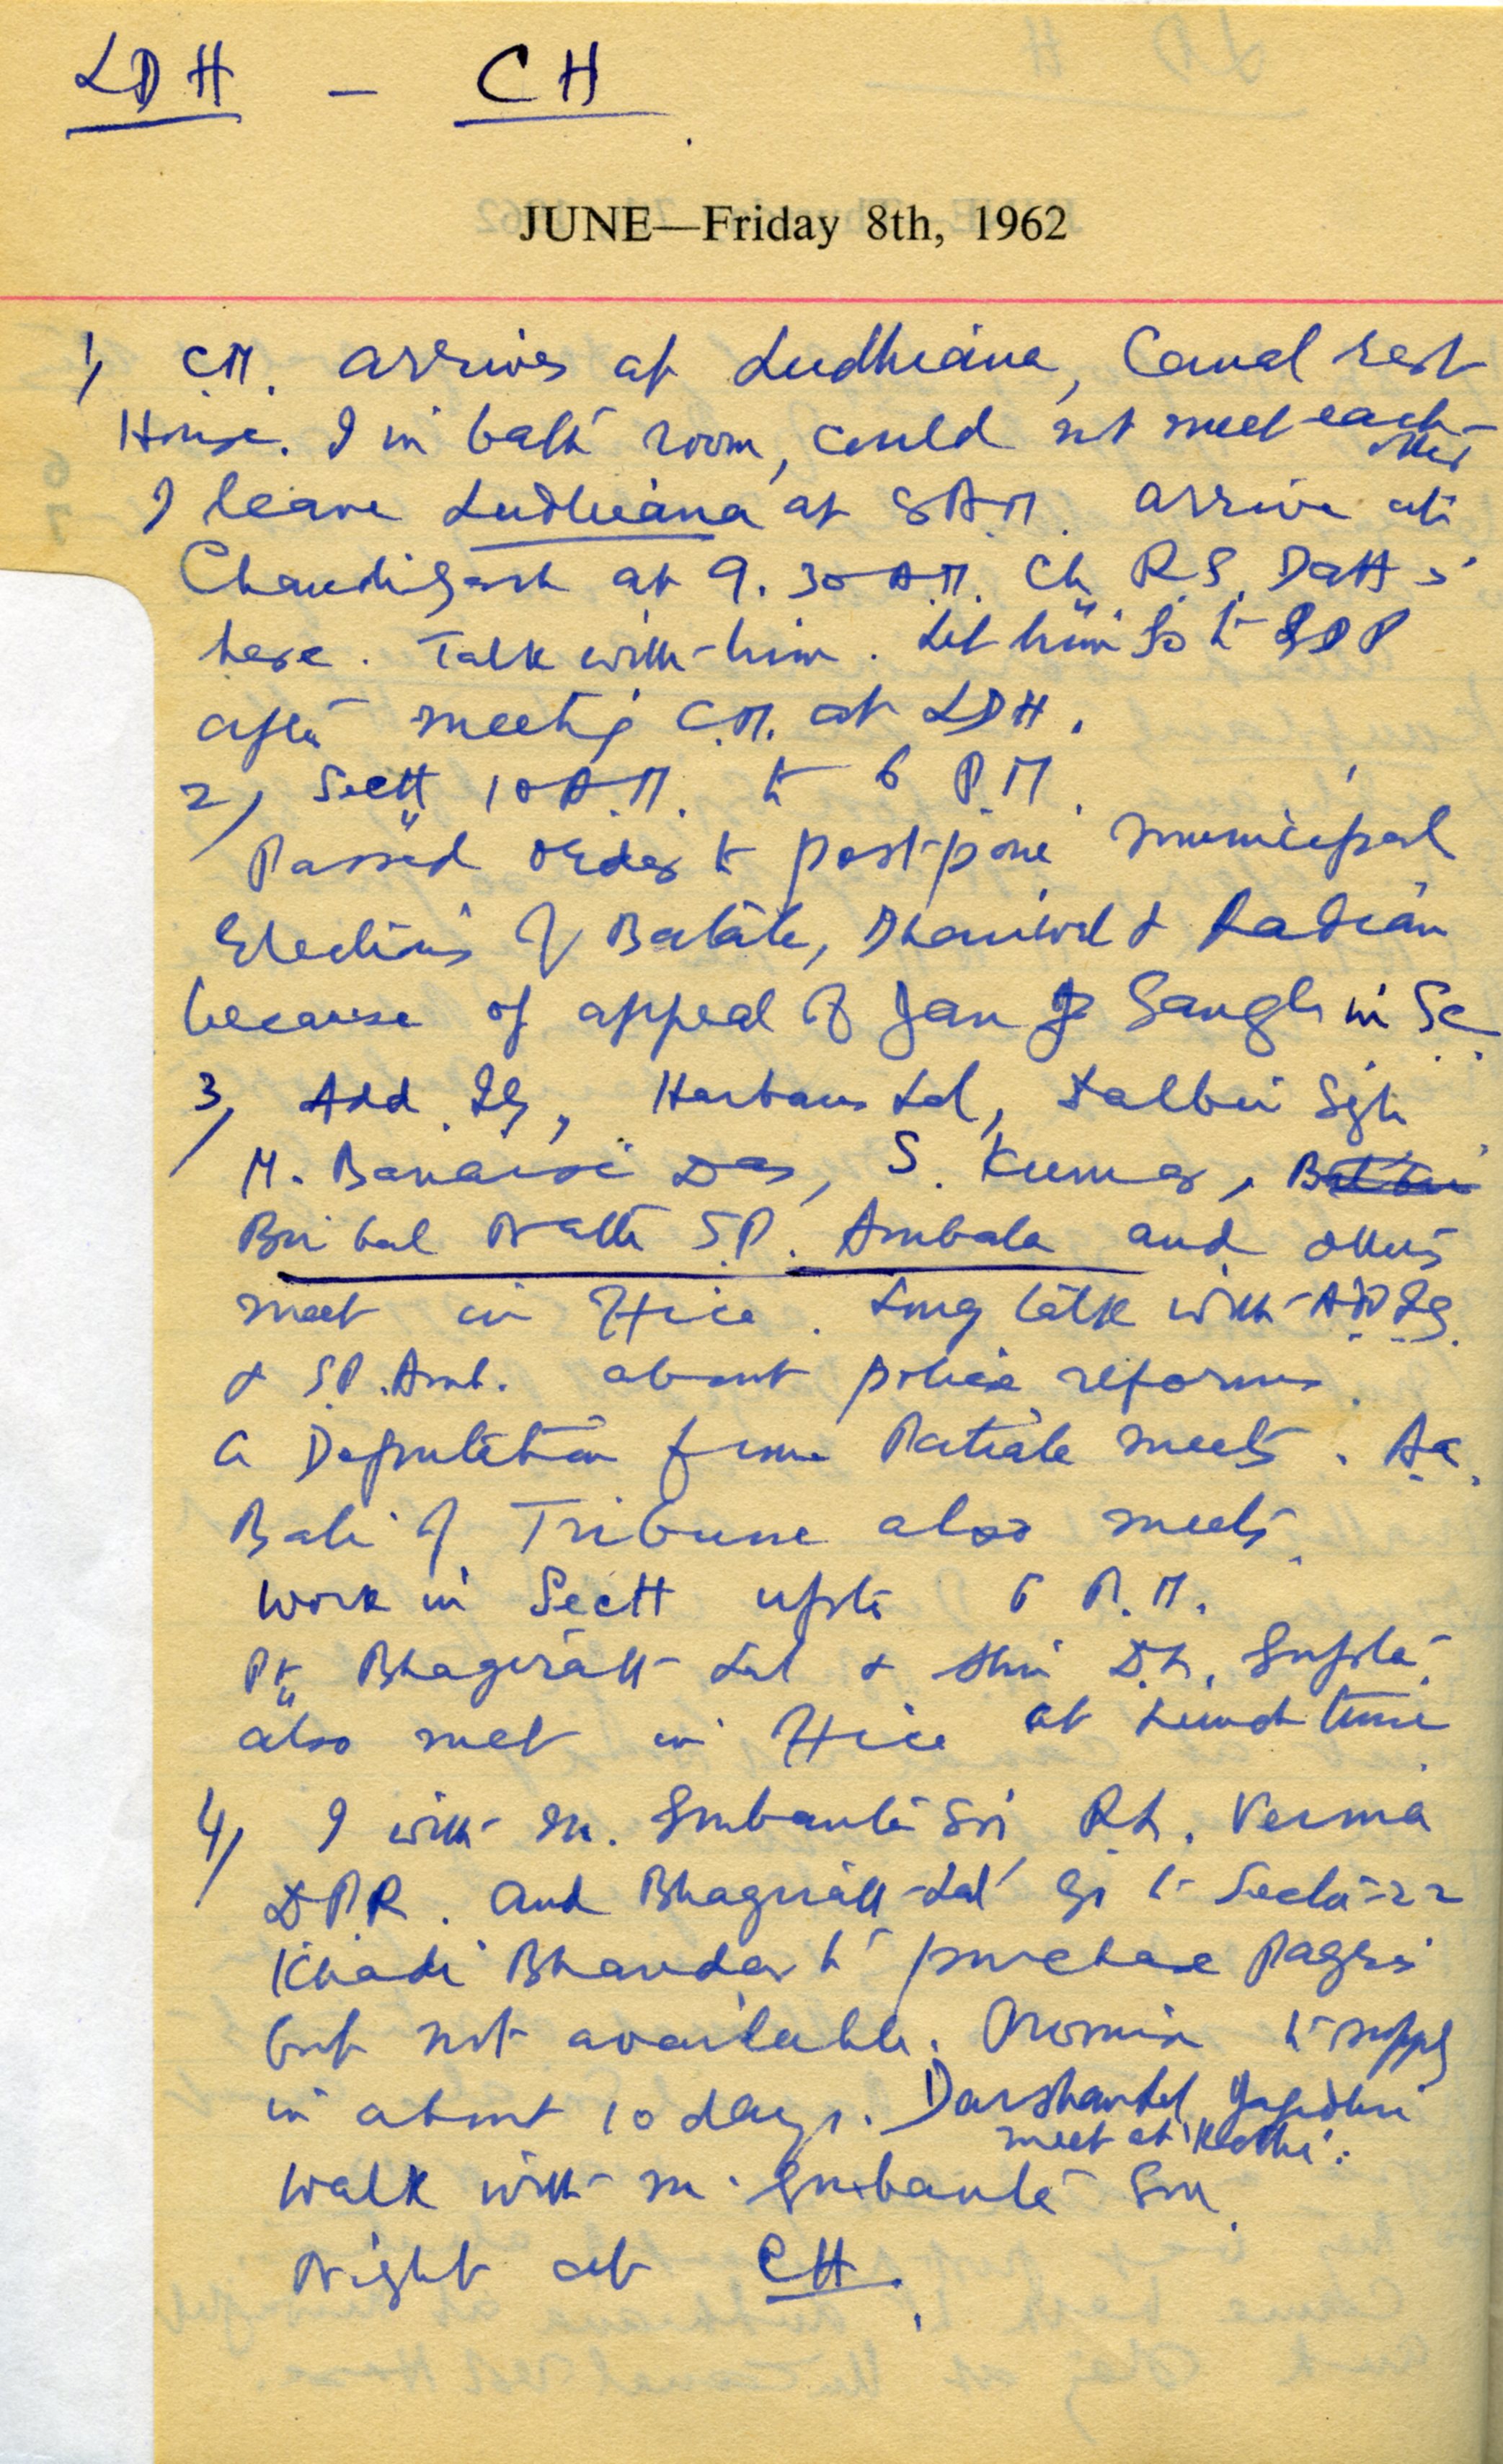 LDH - CH
JUNE—Friday 8th, 1962
1) C.M. arrives at Ludhiana, Canal rest
House. I in bath room, could not meet each-
other
I leave Ludhiana at 8 A.M. arrive at
Chandigarh at 9.30 A.M. Ch. R.S. Datt is
here. Talk with him. Let him go to GDP
after meeting C.M. at LDH.
2) Sectt 10 A.M. to 6 P.M.
Passed order to post-pone municipal
Elections of Batala, Dhariwal & Qadian
because of appeal of Jan Sangh in SC.
3) Add. IG, Harbans Lal, Dalbir Sgh
M. Banarsi Das, S. Kumar,
Bir bal Nath S.P. Ambala and others
meet in office. Long talk with AD IG.
& SP. Amb. about police reforms.
a Deputation from Patiala meets.
Bali of Tribune also meets.
Work in Sectt upto 6 P.M.
Pt. Bhagirath Lal & Shri D.L. Gupta
also met in office at Lunch time
4) I with M. Gurbanta Sn, R.L. Verma
DPR. and Bhagirath Lal go to Sector-22
Khadi Bhandar to purchase Pagri
but not available. Promise to supply
in about 10 days. Darshan Lal
meet at 'Kothi'.
Walk with M. Gurbanta Sn.
Night at CH.